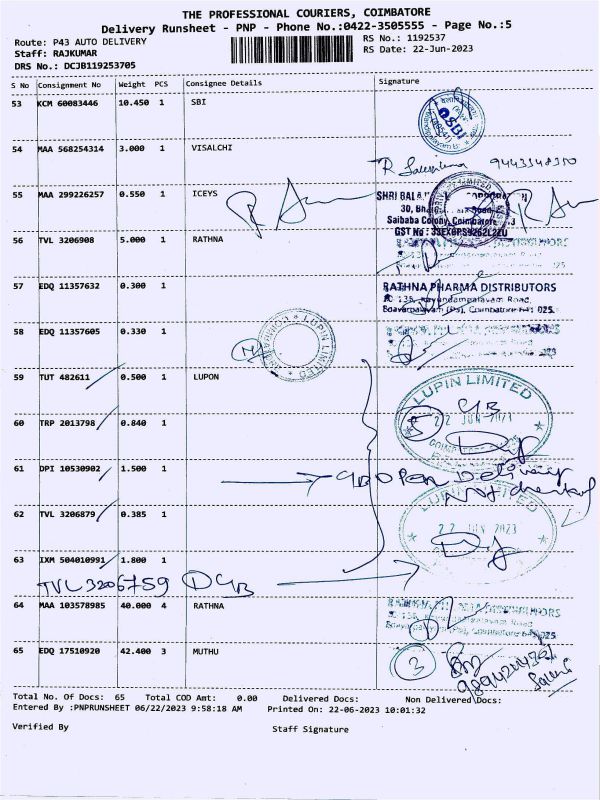 THE PROFESSIONAL COURIERS, COIMBATORE
Delivery Runsheet - PNP - Phone No.:0422-3505555 - Page No.:5
Route: P43 AUTO DELIVERY
RS No.: 1192537
Staff: RAJKUMAR
RS Date: 22-Jun-2023
DRS No.: DCJB119253705
S No Consignment No Weight PCS Consignee Details Signature
53 KCM 60083446 10.450 1 SBI
SBI
54 MAA 568254314 3.000 1 VISALCHI
55 MAA 299226257 0.550 1 ICEYS
SHRI BALA
Saibaba Colony, Coimbatore
GST No :
56 TVL 3206908 5.000 1 RATHNA
57 EDQ 11357632 0.300 1
RATHNA PHARMA DISTRIBUTORS
58 EDQ 11357605 0.330 1
LUPIN LIMITED
59 TUT 482611 0.500 1 LUPON
LUPIN LIMITED
60 TRP 2013798 0.840 1
5
22 JUN 2023
61 DPI 10530902 1.500 1
Open Delivery
Not checked
62 TVL 6206879 0.385 1
LUPIN LIMITED
22 JUN 2023
63 IXM 504010991 1.800 1
TVL 3206759
64 MAA 103578985 40.000 4 RATHNA
65 EDQ 17510920 42.400 3 MUTHU
3
Total No. Of Docs: 65 Total COD Amt: 0.00 Delivered Docs: Non Delivered Docs:
Entered By :PNPRUNSHEET 06/22/2023 9:58:18 AM Printed On: 22-06-2023 10:01:32
Verified By
Staff Signature